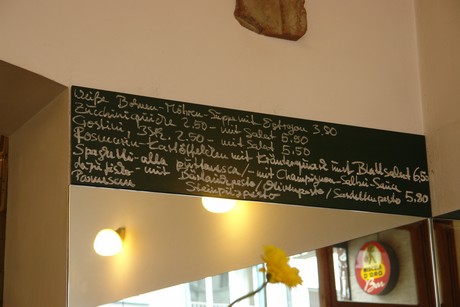 Weiße Bohnen-Möhren-Suppe mit Estragon 3,90
Zucchiniquiche 2.50 - mit Salat 5.50
Crostini, 3St. 2.50 - mit Salat 5.50
Rosmarin-Kartoffeln mit Kräuterquark und Blattsalat 6,50
Spaghetti - alla Puttanesca / - mit Champignon-Salbei-Sauce
- mit Bärlauchpesto / Olivenpesto / Sardellenpesto 5.80
Parmesan Steinpilzpesto
D'ORO
Bar